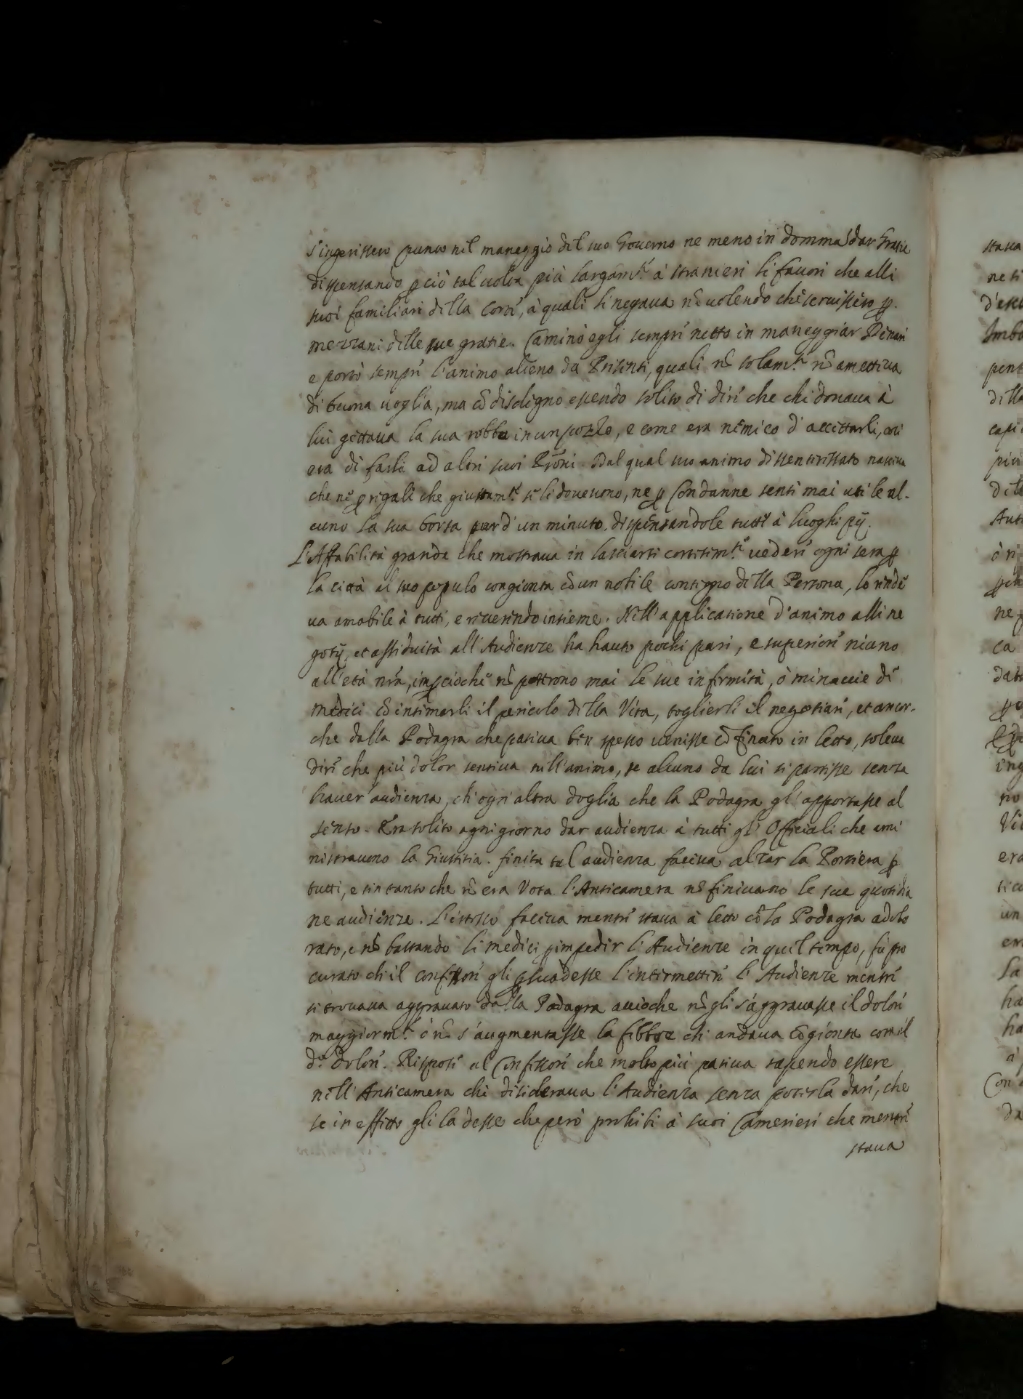 s'ingerissero punto nel maneggio del suo Governo ne meno in domandar gratie
dispensando p ciò tal uolta più largam.te à stranieri li fauori che alli
suoi familiari della Corte, à quali li negaua nō uolendo che seruissero p
mezzani delle sue gratie. Caminò egli sempre netto in maneggiar Denari
e portò sempre l'animo alieno da Presenti, quali nō solam.te nō ametteua
di buona uoglia, ma cō disdegno essendo solito di dire che chi donaua à
lui gettaua la sua robba in un pozzo, e come era nemico d'accettarli, così
era di farli ad altri suoi Prōni. Dal qual suo animo disinteressato nasceua
che nè p rigali che giustam.te se li doueuono, ne p Condanne sentì mai utile al-
cuno la sua borsa pur d'un minuto, dispensandole tutte à luoghi pij.
L'Affabilità grande che mostraua in lasciarsi cortesim.te uedere ogni sera p
la città al suo populo congionta cō un nobile contegno della Persona, lo rende
ua amabile à tutti, e riuerendo insieme. Nell'applicatione d'animo alli ne
gotij, et assiduità all'Audienze ha hauto pochi pari, e superiore niuno
all'età nra, impercioche nō potero mai le sue infirmità, ò minaccie de
Medici cō intimarli il pericolo della Vita, toglierli il negotiare, et ancor-
che dalla Podagra che patiua ben spesso uenisse cōfinato in letto, soleua
dire che più dolor sentiua nell'animo, se alcuno da lui si partisse senza
hauer audienza, di ogni altra doglia che la Podagra gl'apportasse al
senso. Era solito ogni giorno dar audienza à tutti gli Officiali che ami
nistrauono la Giustitia. finita tal audienza faceua alzar la Portiera p
tutti, e sin tanto che nō era Vota l'Anticamera nō finiuano le sue quotidia
ne audienze. L'istesso faceua mentre staua à letto cō la Podagra adolo
rato, e nō bastando li medici p impedir l'Audienze in quel tempo, fù pro
curato che il confessore gli psuadesse l'intermettere l'Audienze mentre
si trouaua aggrauato dalla Podagra accioche nō gli s'aggrauasse il dolore
maggiorm.te ò nō s'augmentasse la febbre che andaua cōgionta con il
d.o dolore. Rispose al Confessore che molto più patiua sapendo essere
nell'Anticamera chi desideraua l'Audienza senza poterla dare, che
se in effetto gli la desse che però prohibì à suoi Camerieri che mentre
staua